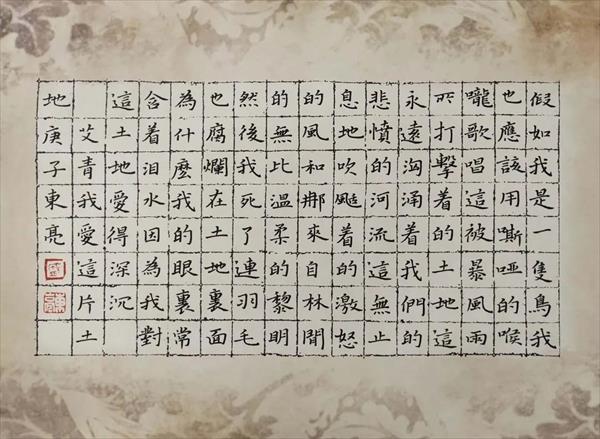 假如我是一隻鳥我
也應該用嘶啞的喉
嚨歌唱這被暴風雨
所打擊着的土地這
永遠洶涌着我們的
悲憤的河流這無止
息地吹颳着的激怒
的風和那來自林間
的無比溫柔的黎明
然後我死了連羽毛
也腐爛在土地裏面
為什麼我的眼裏常
含着泪水因為我對
這土地愛得深沉
艾青我愛這片土
地庚子東亮